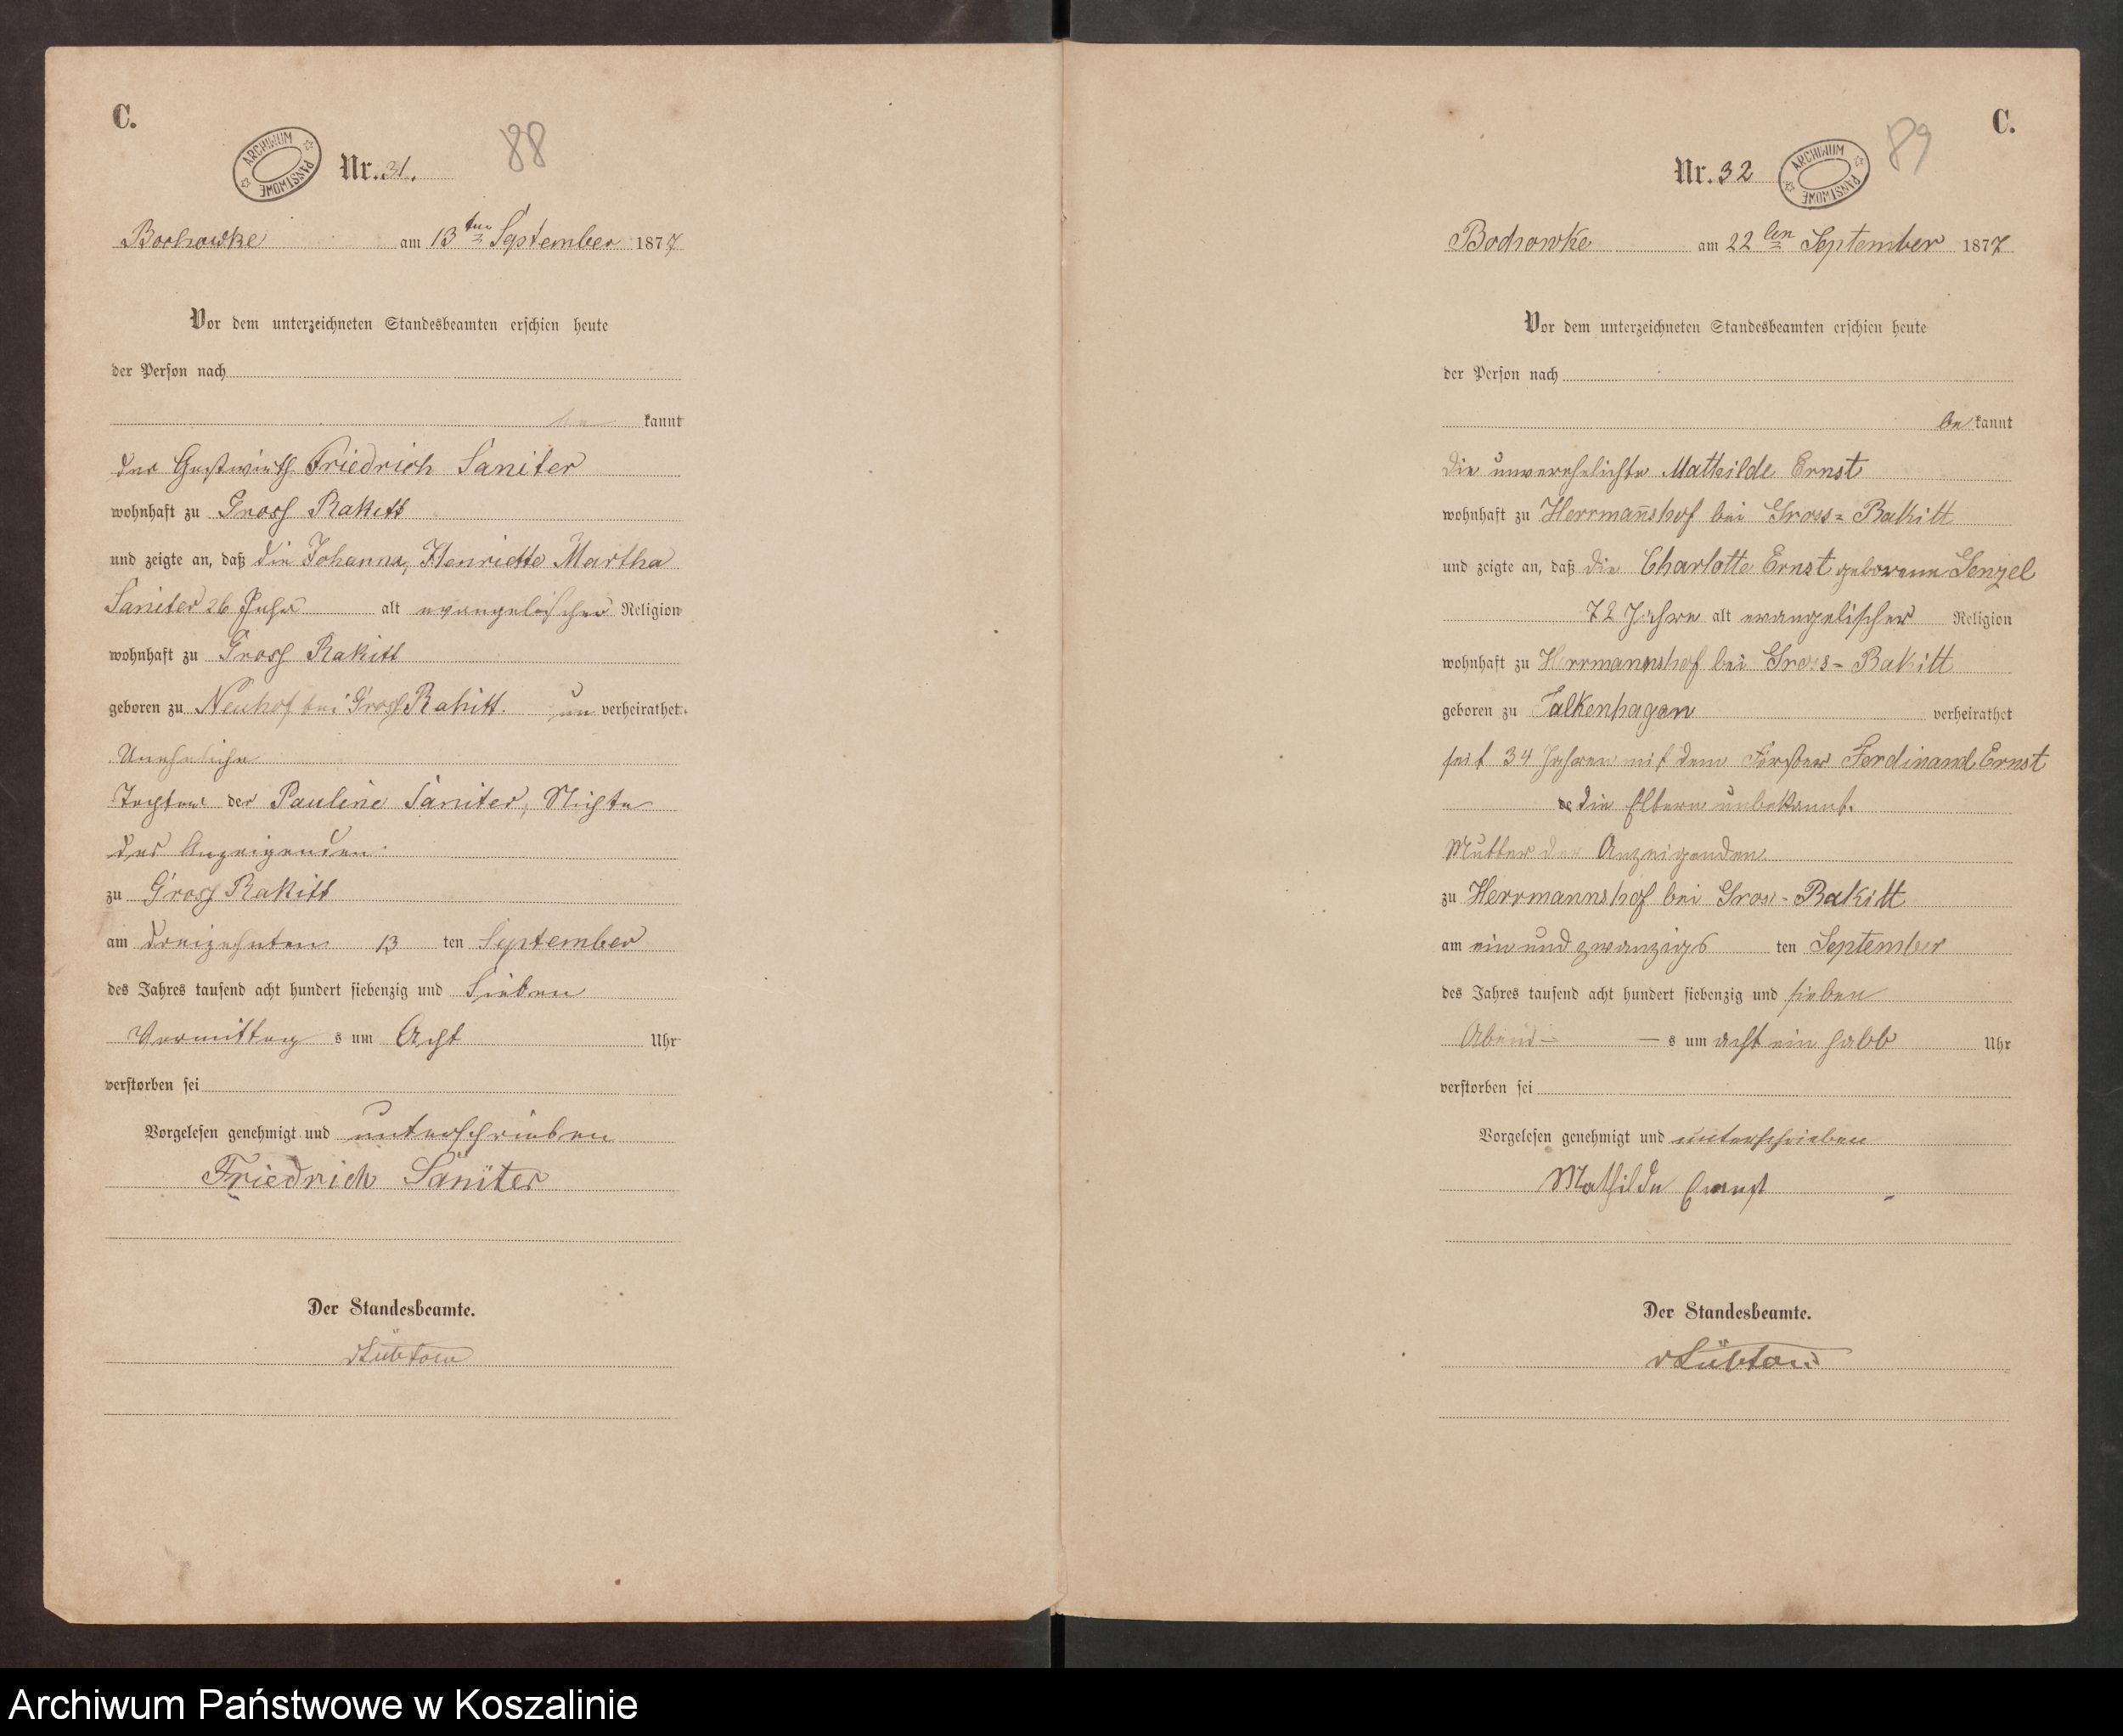 C.
ARCHIWUM PAŃSTWOWE
Nr. 31.
88
Bochowke am 13ten September 1877
Vor dem unterzeichneten Standesbeamten erschien heute
der Person nach
be kannt
der Gastwirth Friedrich Saniter
wohnhaft zu Gross Rakitt
und zeigte an, daß die Johanna, Henriette Martha
Saniter 26 Jahr alt evangelischer Religion
wohnhaft zu Gross Rakitt
geboren zu Neuhof bei Gross Rakitt. un verheirathet.
Uneheliche
Tochter der Pauline Saniter, Nichte
des Anzeigenden.
zu Gross Rakitt
am dreizehnten 13 ten September
des Jahres tausend acht hundert siebenzig und Sieben
Vormittag s um Acht Uhr
verstorben sei
Vorgelesen genehmigt und unterschrieben
Friedrich Saniter
Der Standesbeamte.
vLübtow
C.
Nr. 32
ARCHIWUM PAŃSTWOWE
89
Bochowke am 22ten September 1877
Vor dem unterzeichneten Standesbeamten erschien heute
der Person nach
be kannt
die unverehelichte Mathilde Ernst
wohnhaft zu Herrman̄shof bei Gross-Rakitt
und zeigte an, daß die Charlotte Ernst geborene Genzel
72 Jahre alt evangelischer Religion
wohnhaft zu Herrmannshof bei Gross-Rakitt
geboren zu Falkenhagen verheirathet
seit 34 Jahren mit dem Förster Ferdinand Ernst
die Eltern unbekannt.
Mutter der Anzeigenden
zu Herrmannshof bei Gross-Rakitt
am ein und zwanzigs ten September
des Jahres tausend acht hundert siebenzig und sieben
Abend - - s um acht ein halb Uhr
verstorben sei
Vorgelesen genehmigt und unterschrieben
Mathilde Ernst
Der Standesbeamte.
vLübtow
Archiwum Państwowe w Koszalinie